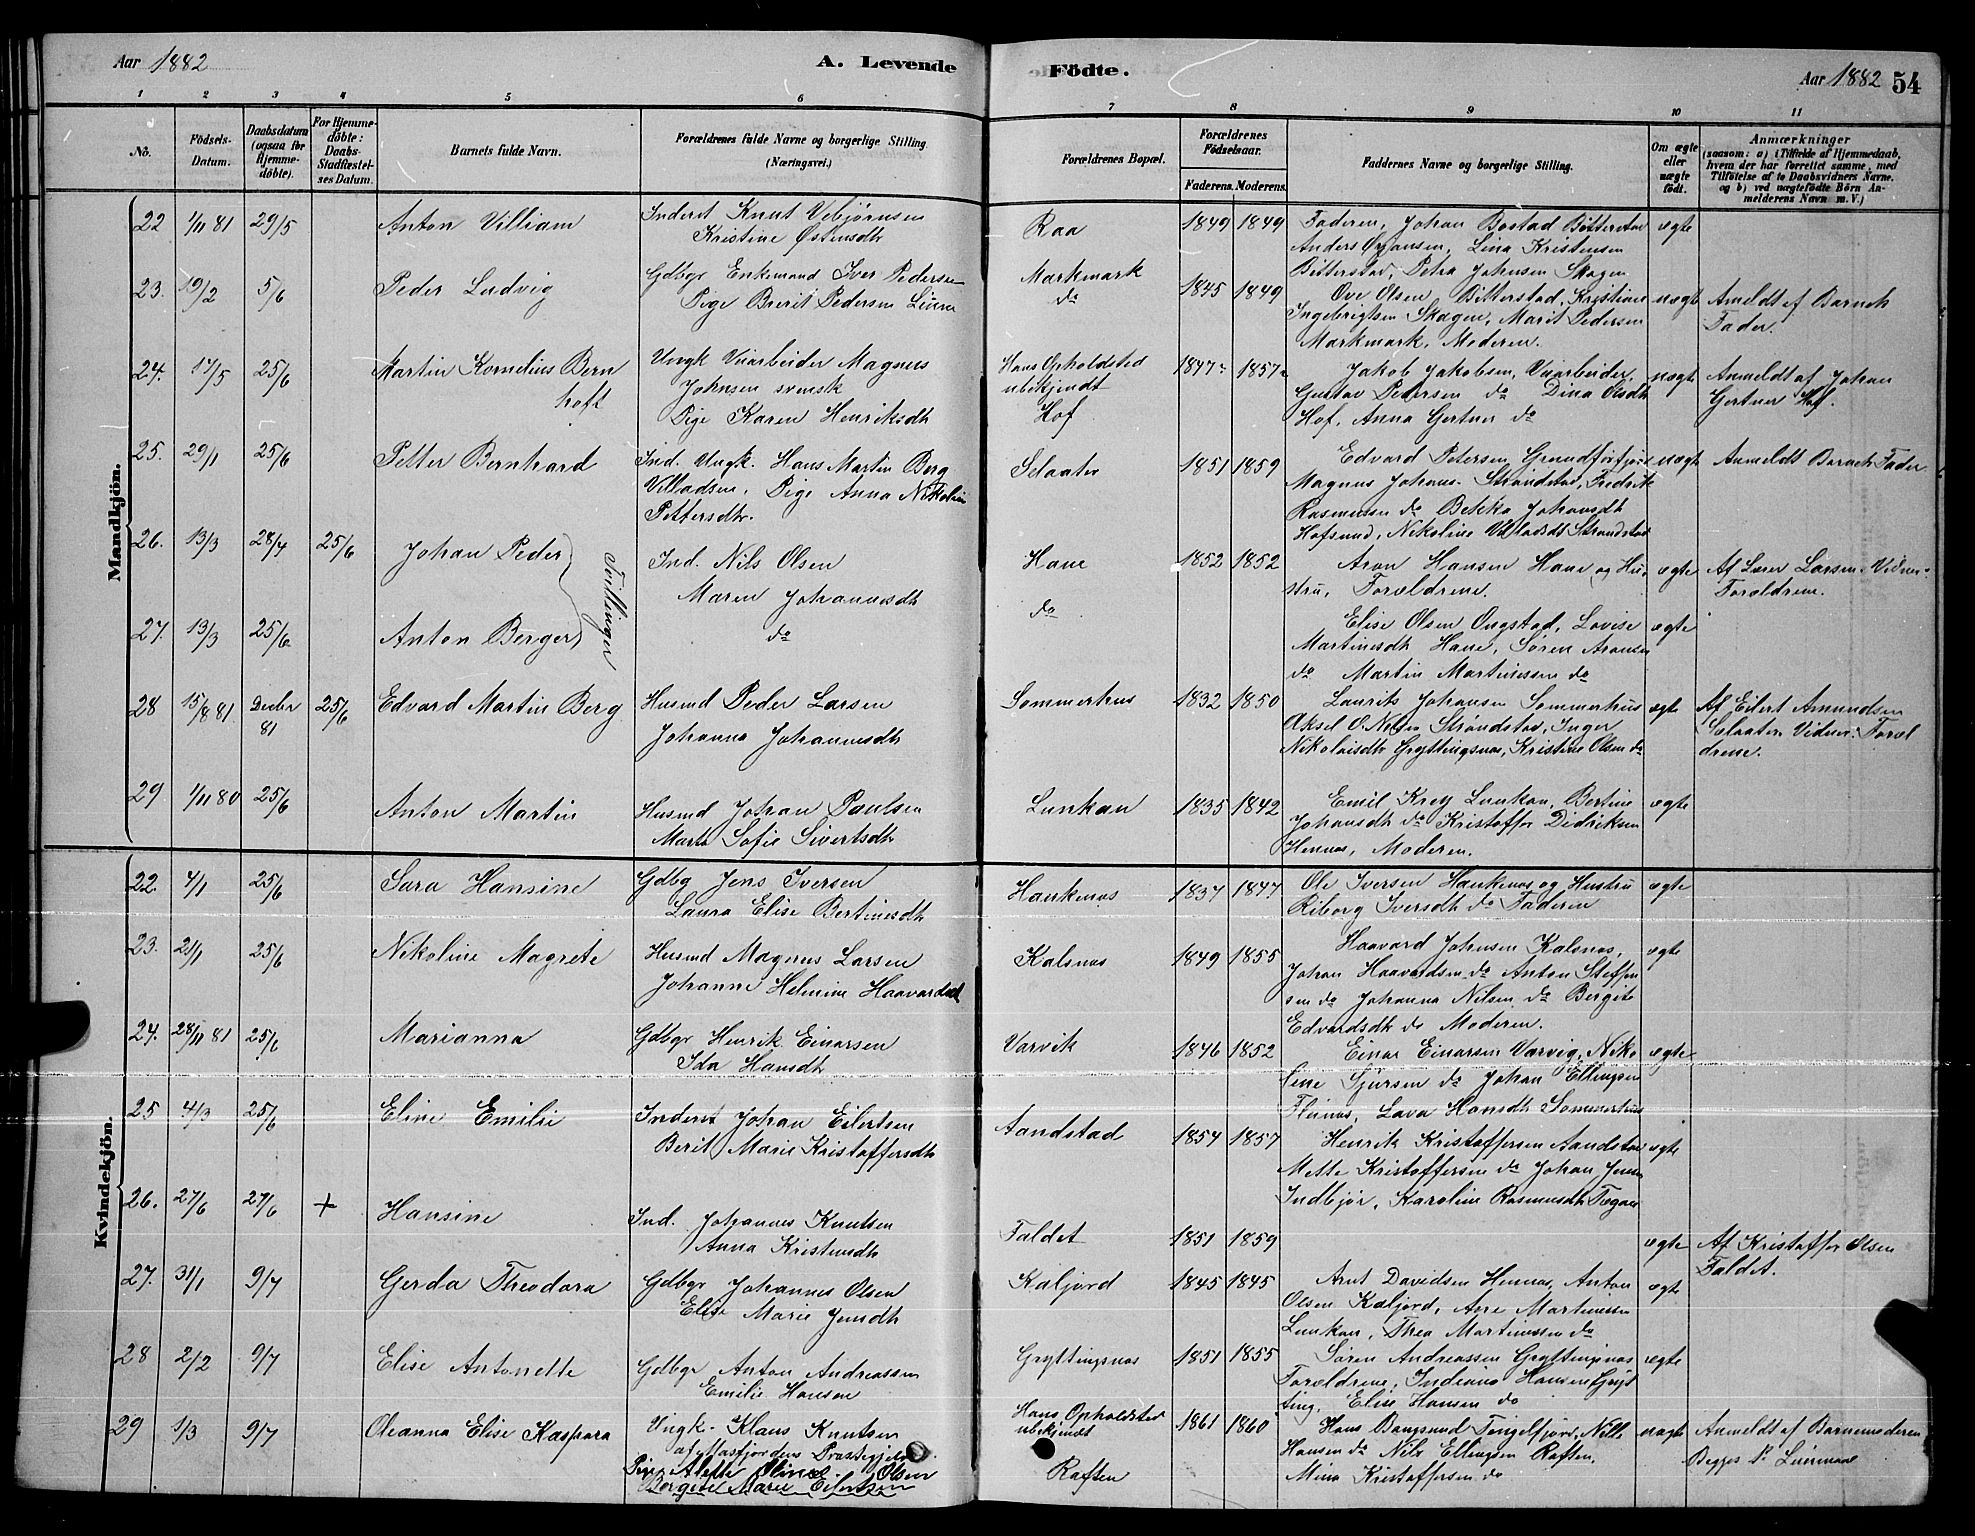 Aar 1882
A. Levende
Födte.
Aar 1882
54
1 2 3 4 5 6 7 8 9 10 11
No.
Födsels-
Datum.
Daabsdatum
(ogsaa for
Hjemme-
döbte).
For Hjemme-
döbte:
Daabs-
Stadfæstel-
ses Datum.
Barnets fulde Navn.
Forældrenes fulde Navne og borgerlige Stilling
(Næringsvei.)
Forældrenes Bopæl.
Forældrenes
Födselsaar.
Faderens. Moderens.
Faddernes Navne og borgerlige Stilling.
Om ægte
eller
uægte
födt.
Anmærkninger
(saasom: a) i Tilfælde af Hjemmedaab,
hvem der har forrettet samme, med
Tilföielse af to Daabsvidners Navne,
og b) ved uægtefödte Börn An-
melderens Navn m. V.)
Mandkjön.
22 1/11 81 29/5
Anton Villiam
Inderst Knut Vebjørnsen
Kristine Østensdtr
Raa
1849 1849
Faderen, Johan Bostad
Anders Lina Kristensen
Bitterstad, Petra Johnsen Skagen
ægte
23. 19/2 5/6
Peder Ludvig
Gdbgr Enkemand Iver Pedersen
Pige Brerit Pedersen
Markmark
do
1845 1849
Ove Olsen Bitterstad, Kristian
Ingebrigtsen Skagen, Marit Pedersen
Markmark, Moderen.
uægte
Anmeldt af Barnets
Fader.
24. 17/5 25/6
Martin Kornelius Bern
hoft
Ungk Vaiarbeider Magnus
Johnsen svensk
Pige Karen Henriksdtr
Hans Opholdsted
ubekjendt
Hof
1847 1857
Jakob Jakobsen, Vaiarbeider,
Gustav Petersen do Dina Olsdtr
Hof, Anna Gertner do
uægte
Anmeldt af Johan
Gertner Hof.
25. 29/1 25/6
Petter Bernhard
Ind. Ungk. Hans Martin Berg
Villadsen, Pige Anna Nikoline
Pettersdtr.
Selaater
1851 1859
Edvard Petersen, Grundførfjord
Magnus Johans. Strandstad, Fredrik
Rasmussen do Bekka Johansdtr
Hofsund, Nikoline Villadsdt Strandstad
uægte
Anmeldt Barnets Fader
26. 13/3 28/4 25/6
Johan Peder
Tvillinger
Ind. Nils Olsen
Maren Johannesdtr
Hane
1852 1852
Aron Hansen Hane og Hu-
stru, Forældrene.
ægte
Af Larsen Vidner:
Forældrene.
27. 13/3 25/6
Anton Berger
do
do
Elise Olsen Ongstad, Lovise
Martinesdtr Hane, Søren Aronsen
do Martin Martinessen do
ægte
28 15/8 81 Decbr
81 25/6
Edvard Martin Berg
Husmd Peder Larsen
Johanna Johannesdtr
Sommerhus
1832 1850
Laurits Johansen Sommerhus
Aksel O. Strandstad, Inger
Nikolaisdtr Gryttingsnæs, Kristine Olsen do
ægte
Af Eilert Amundsen
Selaater Vidner: Foræl
drene.
29. 1/11 80 25/6
Anton Martin
Husmd Johan Paulsen
Marta Sofie Sivertsdtr
Lunkan
1835 1842
Emil Krey Lunkan, Bertine
Johansdtr do Kristoffer Didriksen
Hennæs, Moderen.
ægte
Kvindekjön.
22. 4/1 25/6
Sara Hansine
Gdbg Jens Iversen
Laura Elise Bertinesdtr
Hankenæs
1837 1847
Ole Iversen Hankenæs og Hustru
Riborg Iversdtr do Faderen
ægte
23. 21/1 25/6
Nikoline Magrete
Husmd Magnus Larsen
Johanne Helmine Haavardsd
Kalsnæs
1849 1855
Haavard Johnsen Kalsnæs,
Johan Haavardsen do Anton Steffen
sen do Johanna Nilsen do Bergite
Edvardsdtr do Moderen.
ægte
24. 28/11 81 25/6
Marianna
Gdbgr Henrik Einarsen
Ida Hansdtr
Varvik
1846 1852
Einar Einarsen Varvig, Niko
line Sjursen do Johan Ellingsen
Fleinæs, Lava Hansdtr Sommerhus
ægte
25 4/3 25/6
Eline Emilie
Inderst Johan Eilertsen
Berit Marie Kristoffersdtr
Aandstad
1854 1857
Henrik Kristoffersen Aandstad
Mette Kristoffersen do Johan Jensen
Indbjør, Karoline Rasmusdtr
ægte
26. 27/6 27/6 +
Hansine
Ind. Johannes Knutsen
Anna Kristensdtr
Faldet
1851 1859
ægte
Af Kristoffer Olsen
Faldet.
27. 31/1 9/7
Gerda Theodora
Gdbgr Johannes Olsen
Elise Marie Jensdtr
Kaljord
1845 1845
Arnt Davidsen Hennæs, Anton
Olsen Kaljord, Ane Martinessen
Lunkan, Thea Martinessen do
ægte
28 2/2 9/7
Elise Antonette
Gdbgr Anton Andreassen
Emilie Hansen
Gryttingsnæs
1851 1855
Søren Andreassen Gryttingsnæs
Forældrene, Indiana Hansen Gryt
ting, Elise Hansen do
ægte
29 1/3 9/7
Oleanna Elise Kaspara
Ungk. Klaus Knutsen
af Præstegjeld
Pige Alette Oline Olsen
Bergete Marie Eilertsen
Hans Opholdsted
ubekjendt
Raften
1861 1860
Hans Bangsund Tengelfjord, Nille
Hansen do Nils Ellingsen Raften,
Mina Kristoffersen do
uægte
Anmeldt af Barnemoderen
Begges